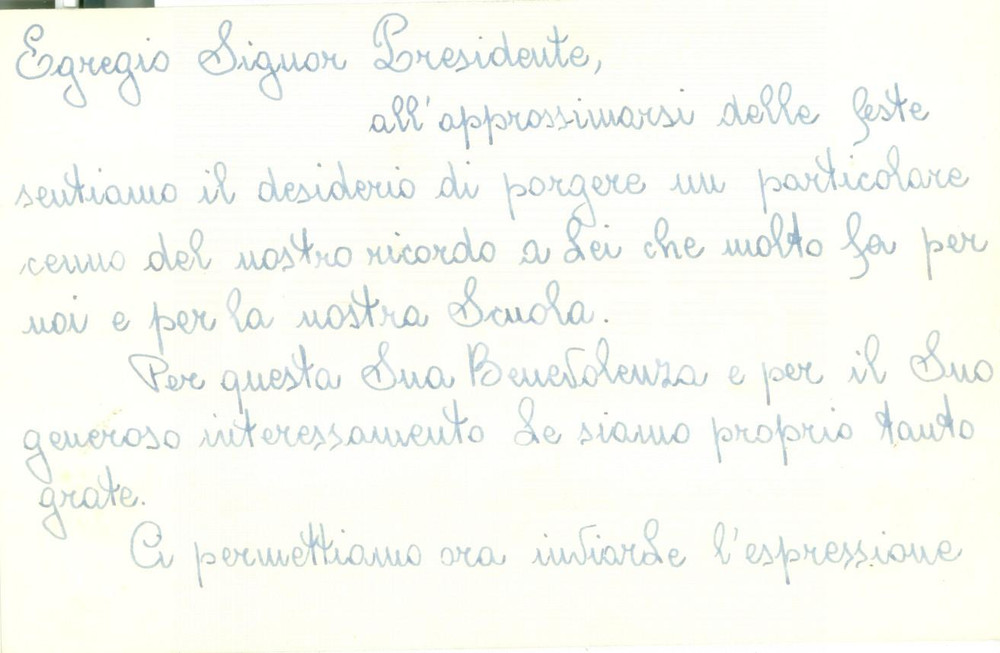 Egregio Signor Presidente,
all'approssimarsi delle feste
sentiamo il desiderio di porgere un particolare
cenno del nostro ricordo a Lei che molto fa per
noi e per la nostra Scuola.
Per questa Sua Benevolenza e per il Suo
generoso interessamento Le siamo proprio tanto
grate.
Ci permettiamo ora inviarLe l'espressione